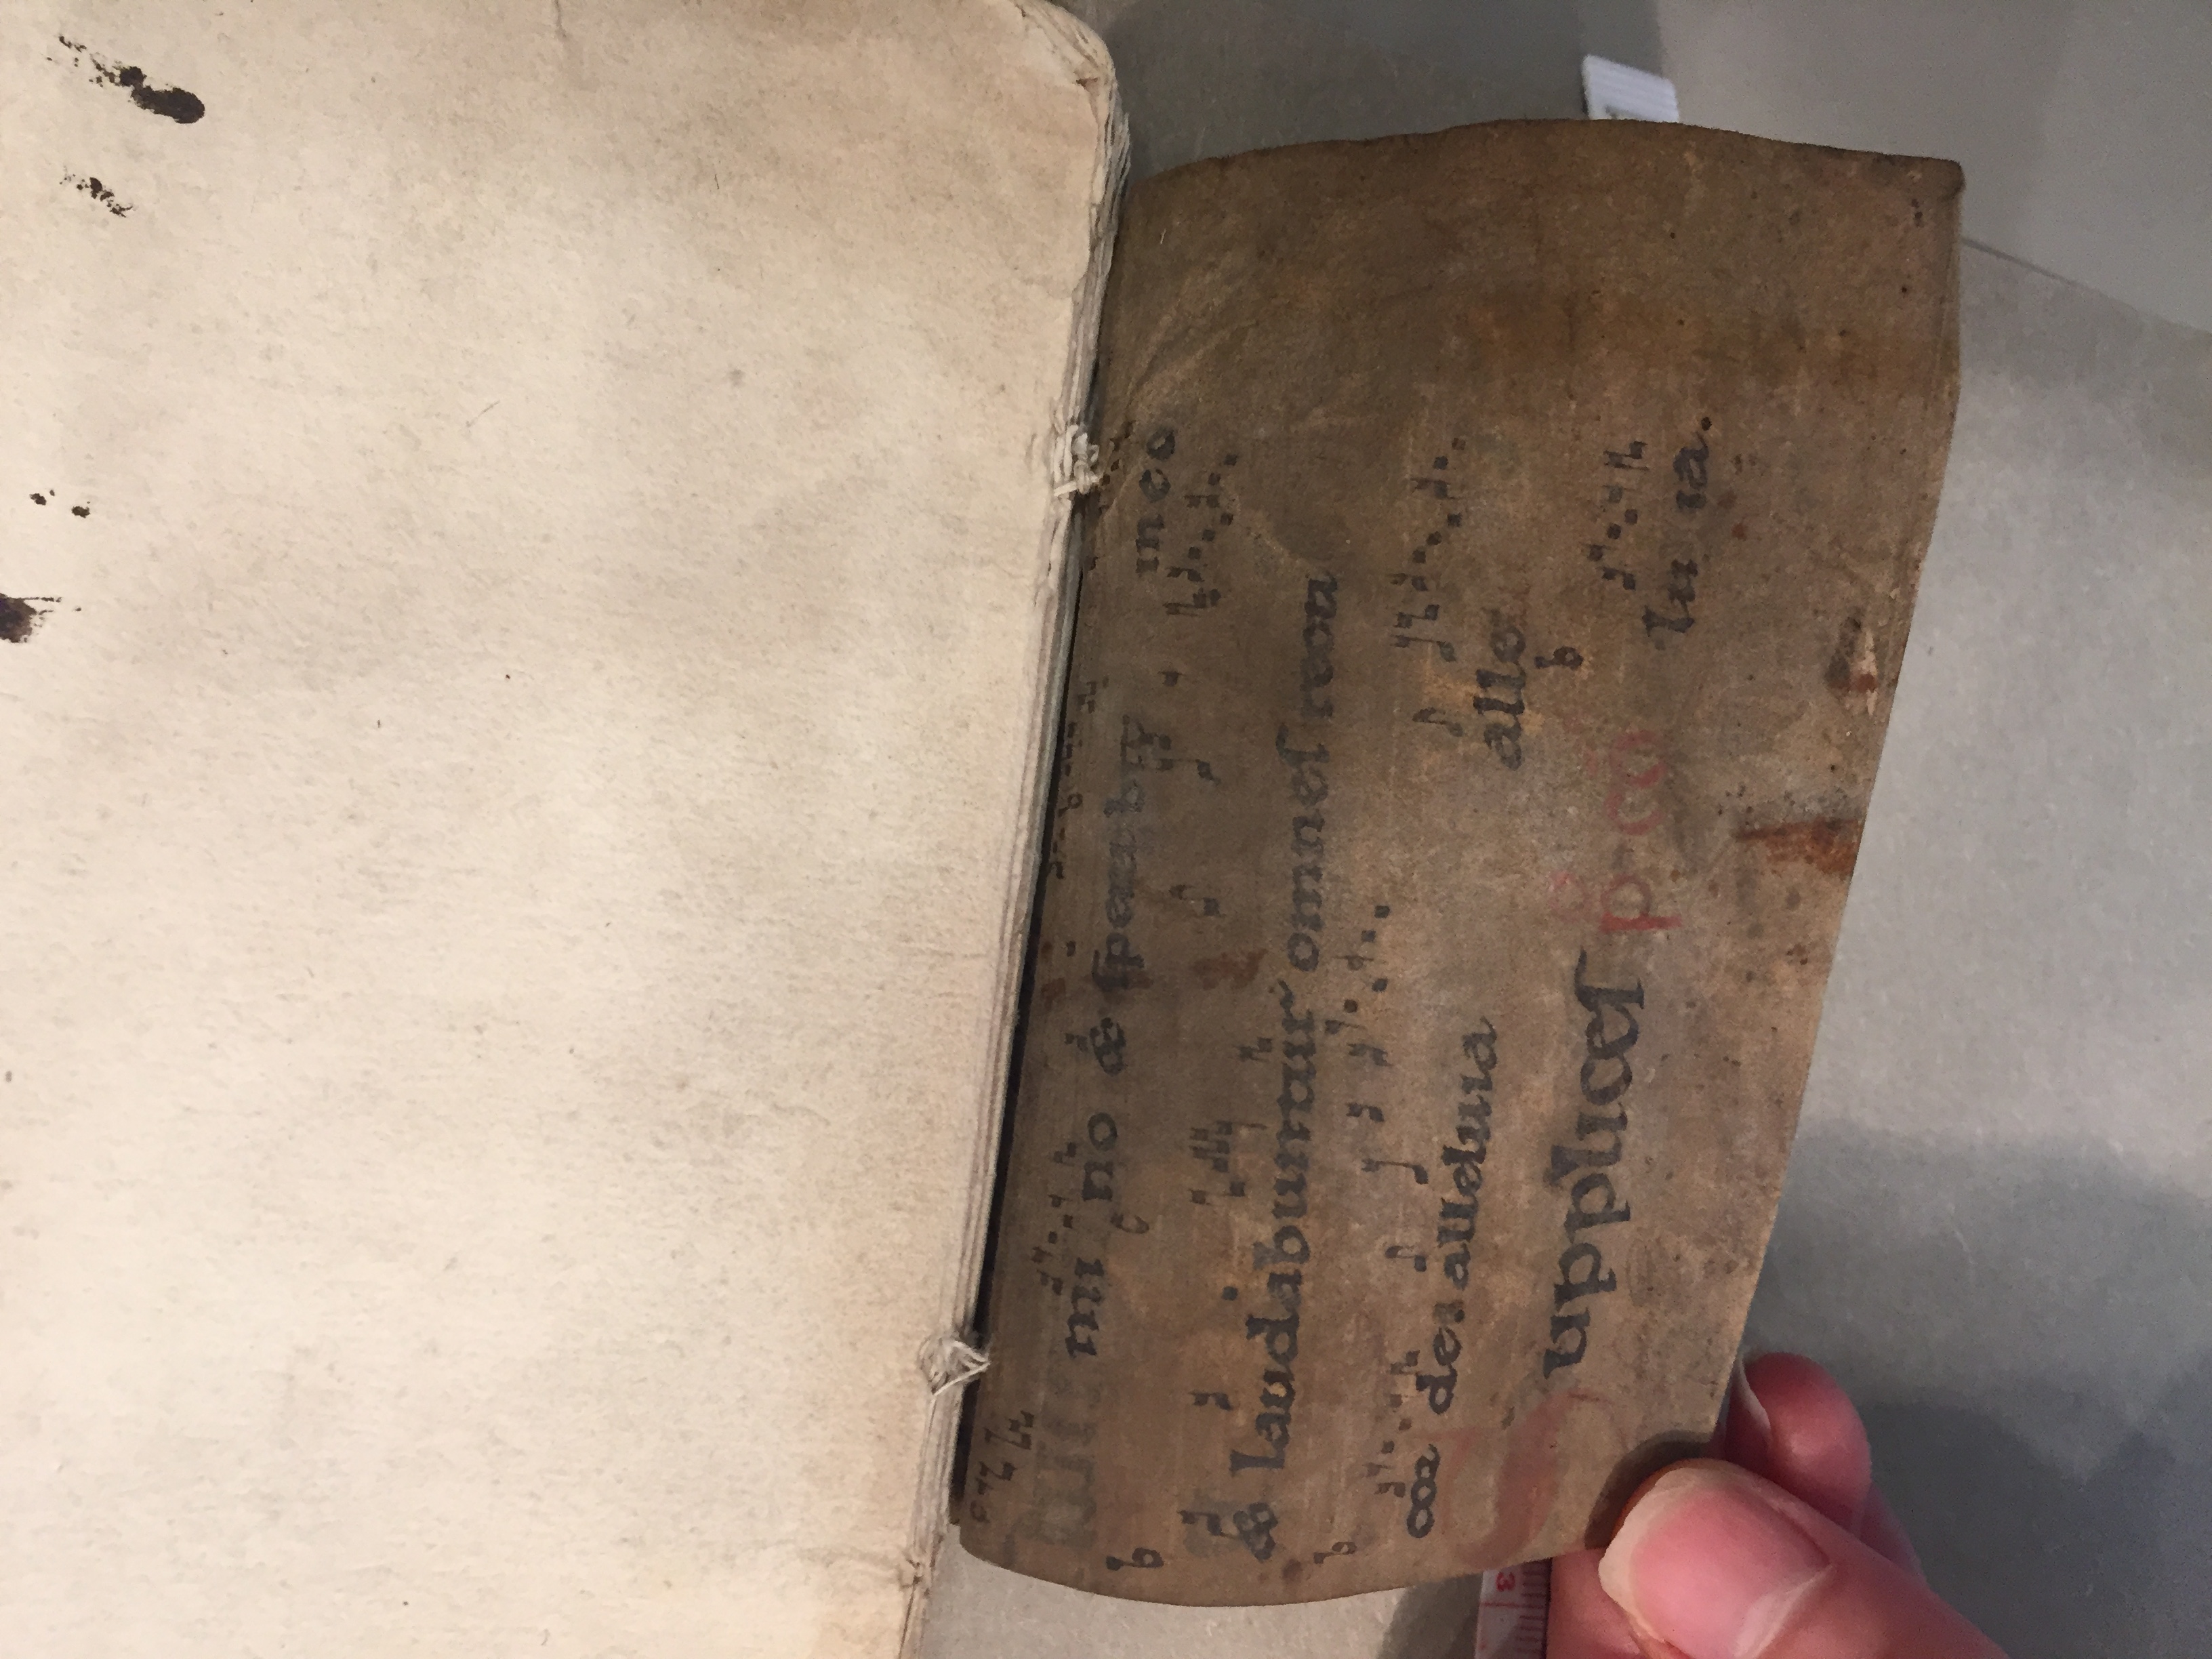 mi no & sperabit in eo
& laudabuntur omnes recti
cor de. alleluia alle
Supplices p co luia.